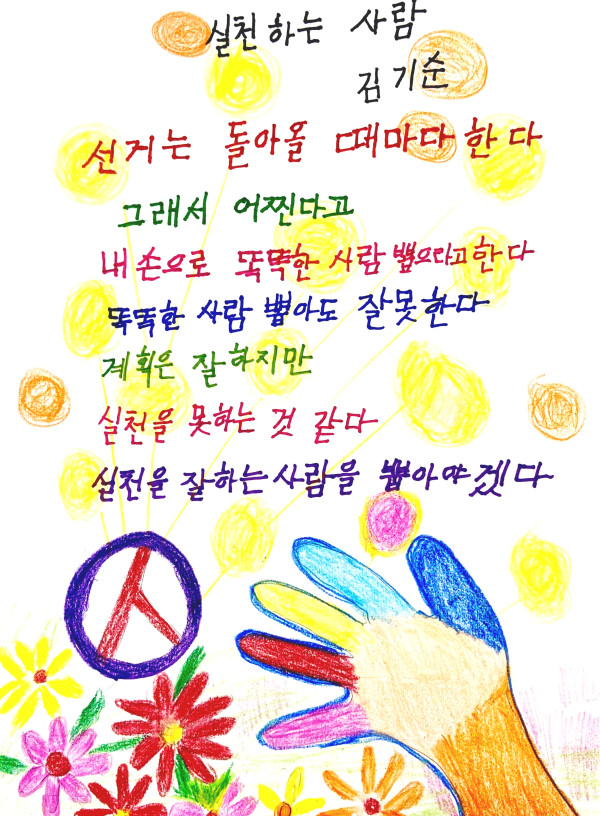 실천하는 사람
김기순
선거는 돌아올 때마다 한다
그래서 어찐다고
내 손으로 똑똑한 사람 뽑으라고 한다
똑똑한 사람 뽑아도 잘못한다
계획은 잘 하지만
실천을 못하는 것 같다
실천을 잘하는 사람을 뽑아야 겠다